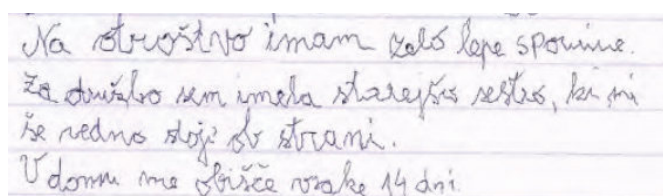 Na otroštvo imam zelo lepe spomine.
Za družbo sem imela starejšo sestro, ki mi
še vedno stoji ob strani.
V domu me obišče vsake 14 dni.